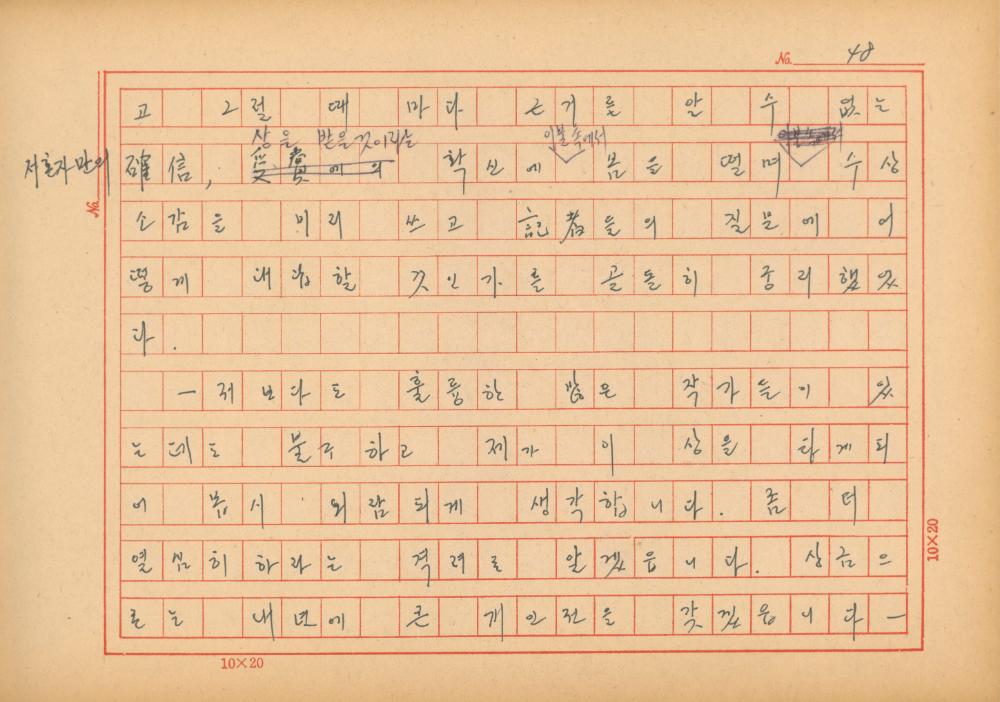 No. 48
고 그럴 때 마다 근거를 알 수 없는
상을 받을 것이라는 이불 속에서
저 혼자만의 確信, 受賞에의 확신에 몸을 떨며 수상
소감을 미리 쓰고 記者들의 질문에 어
떻게 대답할 것인가를 골똘히 궁리했었
다.
— 저보다도 훌륭한 많은 작가들이 있
는데도 불구하고 제가 이 상을 타게되
어 몹시 외람되게 생각합니다. 좀 더
열심히하라는 격려로 알겠읍니다. 상금으
로는 내년에 큰 개인전을 갖겠읍니다—
No.
10×20
10×20